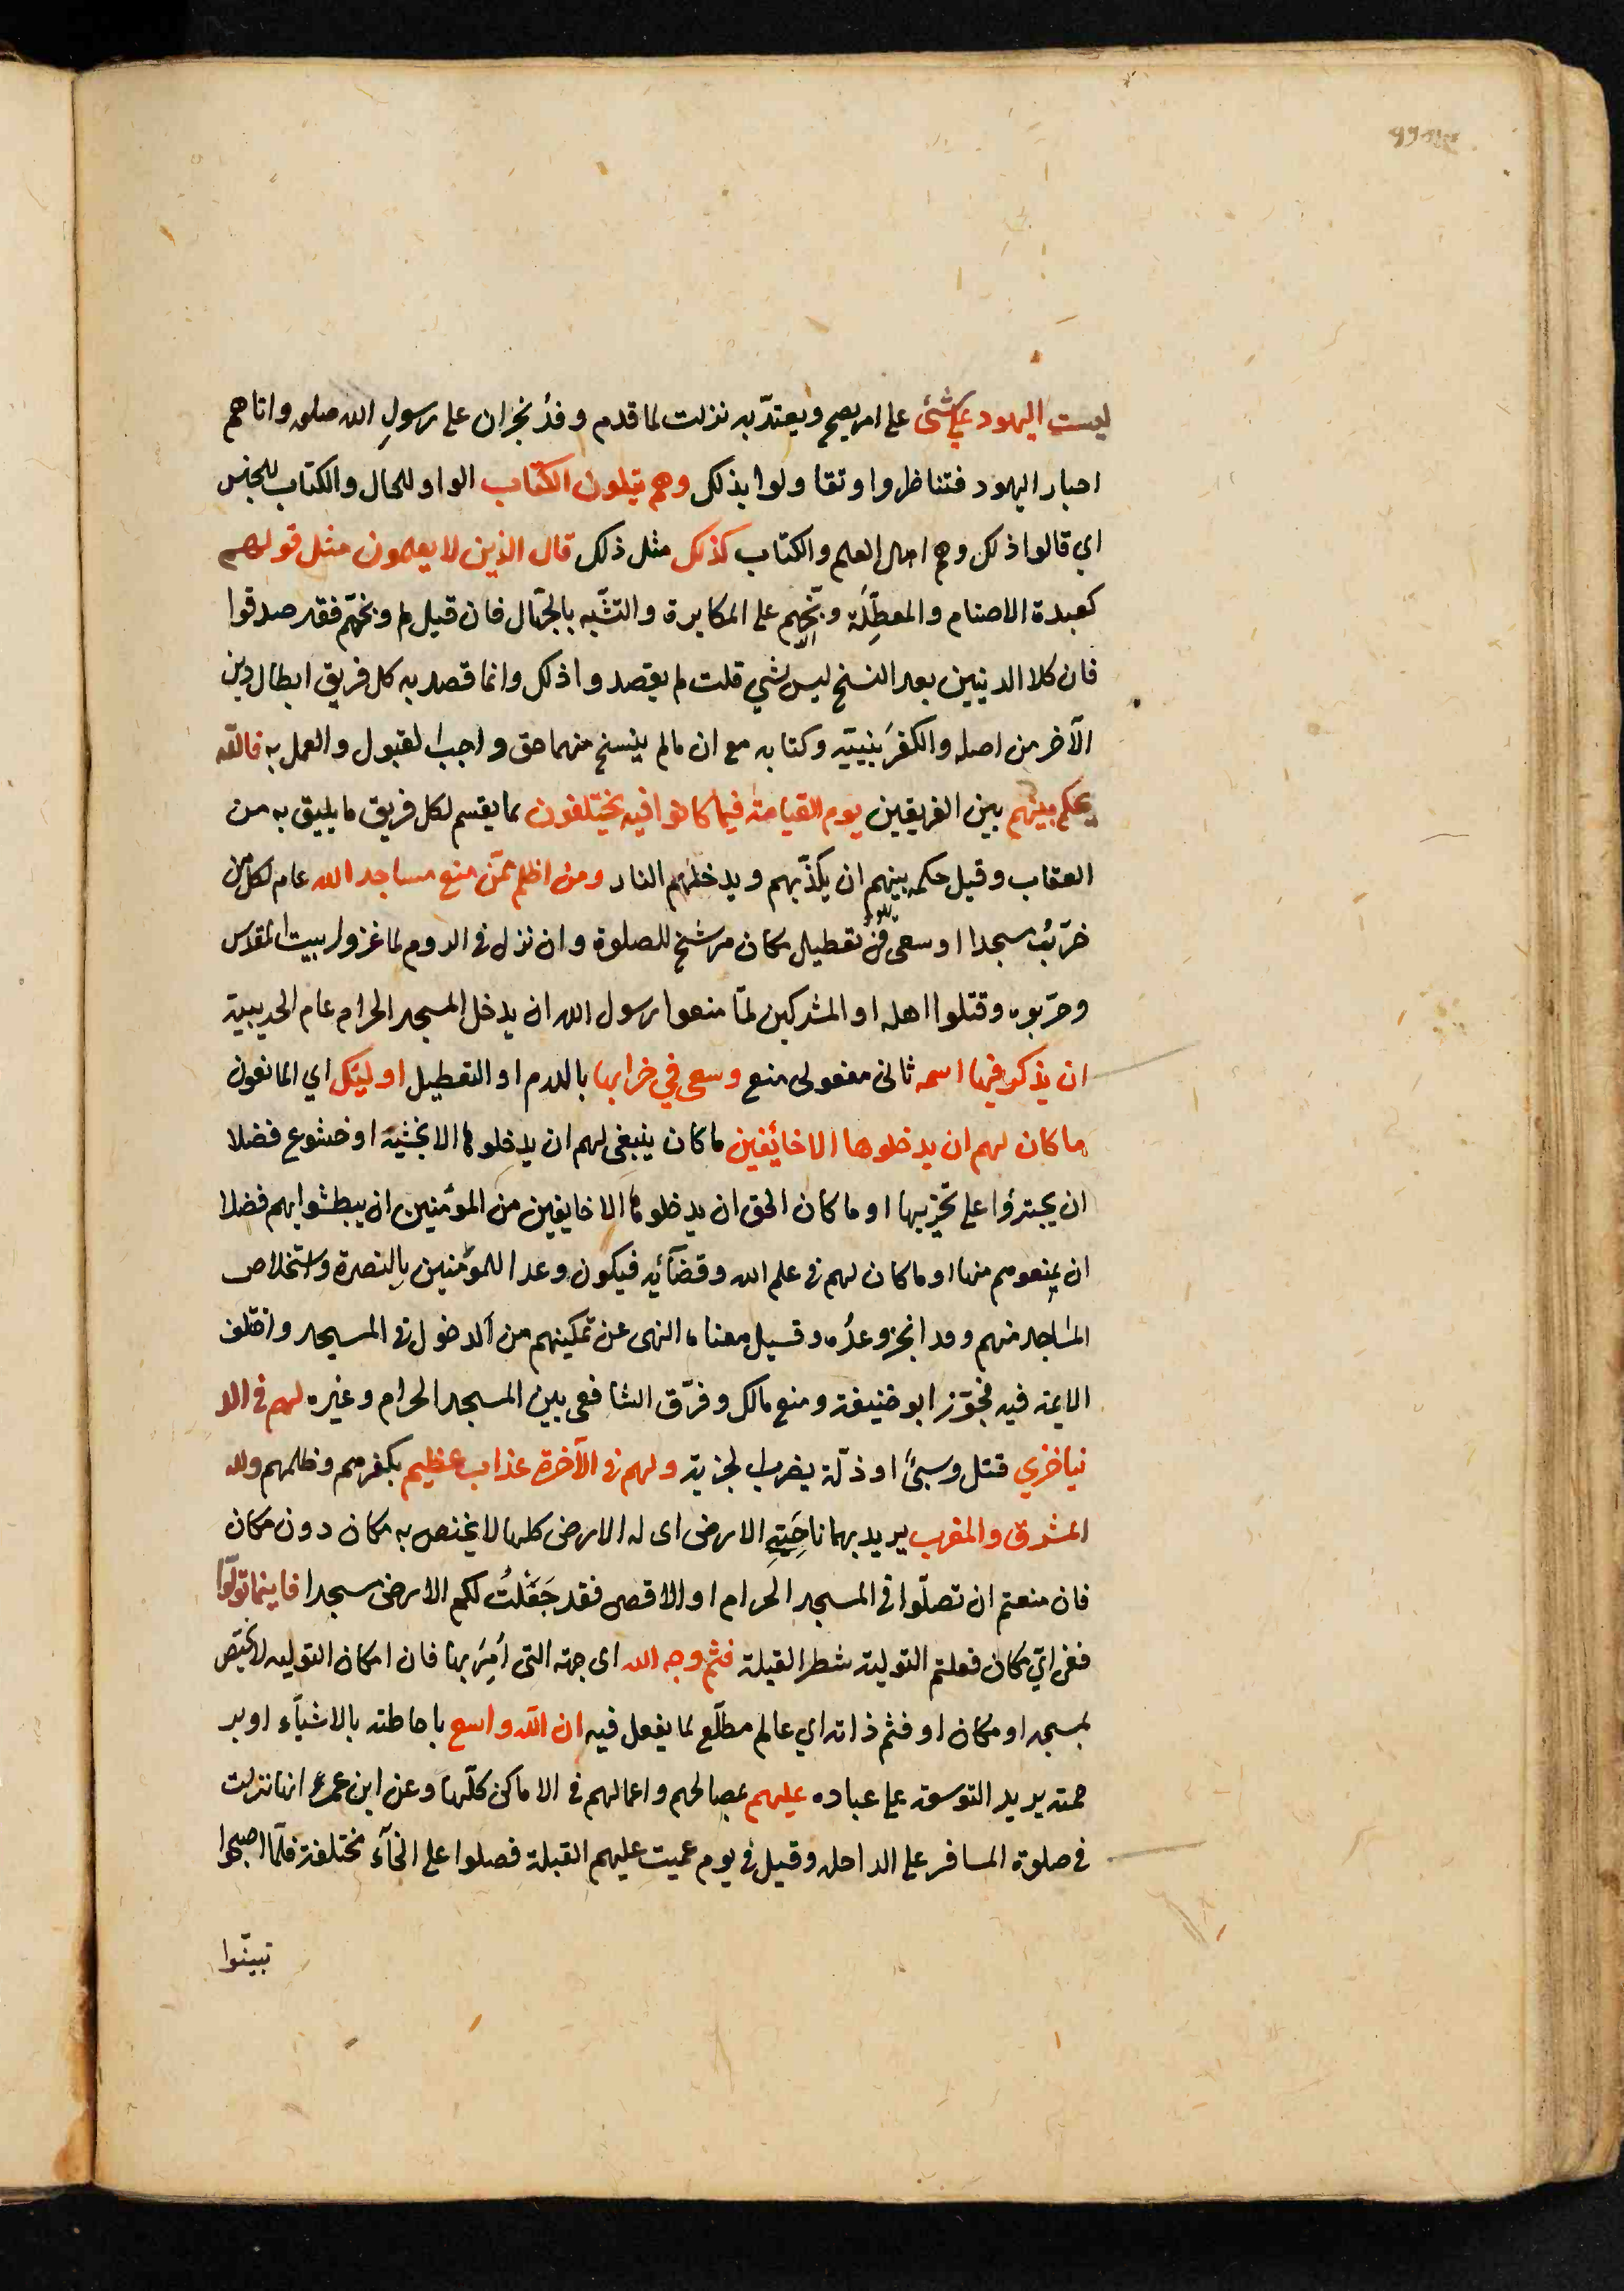 ليست اليهود علي شئ على امر يصح ويعتدّ به نزلت لما قدم وفدُ نجران على رسولِ الله صلعم واتاهم
احبار اليهود فتناظروا وتقاولوا بذلك وهم يتلون الكتاب الواو للحال والكتاب للجنس
اي قالوا ذلك وهم اهل العلم والكتاب كذلك مثل ذلك قال الذين لا يعلمون مثل قولهم
كعبدة الاصنام والمعطِّلَة وبّخهم على المكابرة والتشّبه بالجهّال فان قيل لم وبّخهم فقد صدقوا
فان كلا الدينين بعد النسخ ليس بشي قلت لم يقصدوا ذلك وانما قصد به كل فريق ابطال دين
الآخر من اصله والكفرَ بنبيّه وكتابه مع ان مالم ينسخ منهما حق واجب القبول والعمل به فالله
يحكم بينهم بين الفريقين يوم القيامة فيما كانوا فيه يختلفون بما يقسم لكل فريق ما يليق به من
العقاب وقيل حكمه بينهم ان يكذّبهم ويدخلهم النار ومن اظلم ممّن منع مساجد الله عام لكل من
خرّب مسجدا او سعى في تعطيل مكان مرشح للصلوة وان نزل في الروم لما غزوا بيت المقدس
وخرّبوه وقتلوا اهله او المشركين لمّا منعوا رسول الله ان يدخل المسجد الحرام عام الحديبية
ان يذكر فيها اسمه ثاني مفعولي منع وسعى في خرابها بالهدم او التعطيل اوليٓك اي المانعون
ما كان لهم ان يدخلوها الا خائفين ما كان ينبغى لهم ان يدخلوها الا بخشية او خشوع فضلا
ان يجترؤا على تخريبها او ما كان الحق ان يدخلوها الا خايفين من المؤمنين ان يبطشوا بهم فضلا
ان يمنعوهم منها او ما كان لهم في علم الله وقضآئه فيكون وعدا للمؤمنين بالنصرة واستخلاص
المساجد منهم وقد انجز وعدُه وقيل معناه النهى عن تمكينهم من الدخول في المسجد واختلف
الايمة فيه فجوّز ابو حنيفة ومنع مالك وفرّق الشافعى بين المسجد الحرام وغيره لهم في الد
نيا خزي قتل وسبىٌ او ذلّة بضرب الجزية ولهم في الآخرة عذاب عظيم بكفرهم وظلمهم ولله
المشرق والمغرب يريد بهما ناحِيَتيِ الارض اى له الارض كلها لا يختص به مكان دون مكان
فان منعتم ان تصلّوا في المسجد الحرام او الاقصى فقد جَعَلْتُ لكم الارض مسجدا فاينما تولّوا
ففى ايّ مكان فعلتم التولية شطر القبلة فثم وجه الله اى جهته التى أُمِرَ بها فان امكان التوليه لا يختص
بمسجد او مكان او فثم ذاته اي عالم مطلّع لما يفعل فيه ان الله واسع باحاطته بالاشيآء او بر
حمته يريد التوسعة على عباده عليهم بمصالحهم واعمالهم في الاماكن كلّها وعن ابن عمر انها نزلت
في صلوة المسافر على الراحله وقيل في يوم عميت عليهم القبلة فصلوا على انحآء مختلفة فلمّا اصبحوا
تبيّنوا